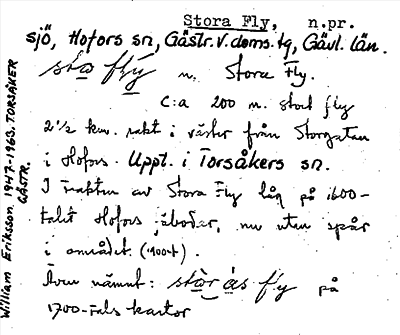 Stora Fly, n.pr.
sjö, Hofors sn, Gästr.v.doms.tg, Gävl. län.
n. Stora Fly.
C:a 200 m. stort fly
2 1/2 km. rakt i väster från Storgatan
i Hofors. Uppt. i Torsåkers sn.
I trakten av Stora Fly låg på 1600-
talet Hofors fäbodar, nu utan spår
i området. (1900t).
Även nämnt: på
1700-tals kartor
William Eriksson 1947-1963. TORSÅKER
GÄSTR.